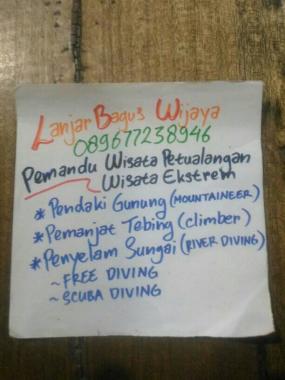 Lanjar Bagus Wijaya
089677238946
Pemandu Wisata Petualangan
Wisata Ekstrem
* Pendaki Gunung (MOUNTAINEER)
* Pemanjat Tebing (climber)
* Penyelam Sungai (RIVER DIVING)
~ FREE DIVING
~ SCUBA DIVING